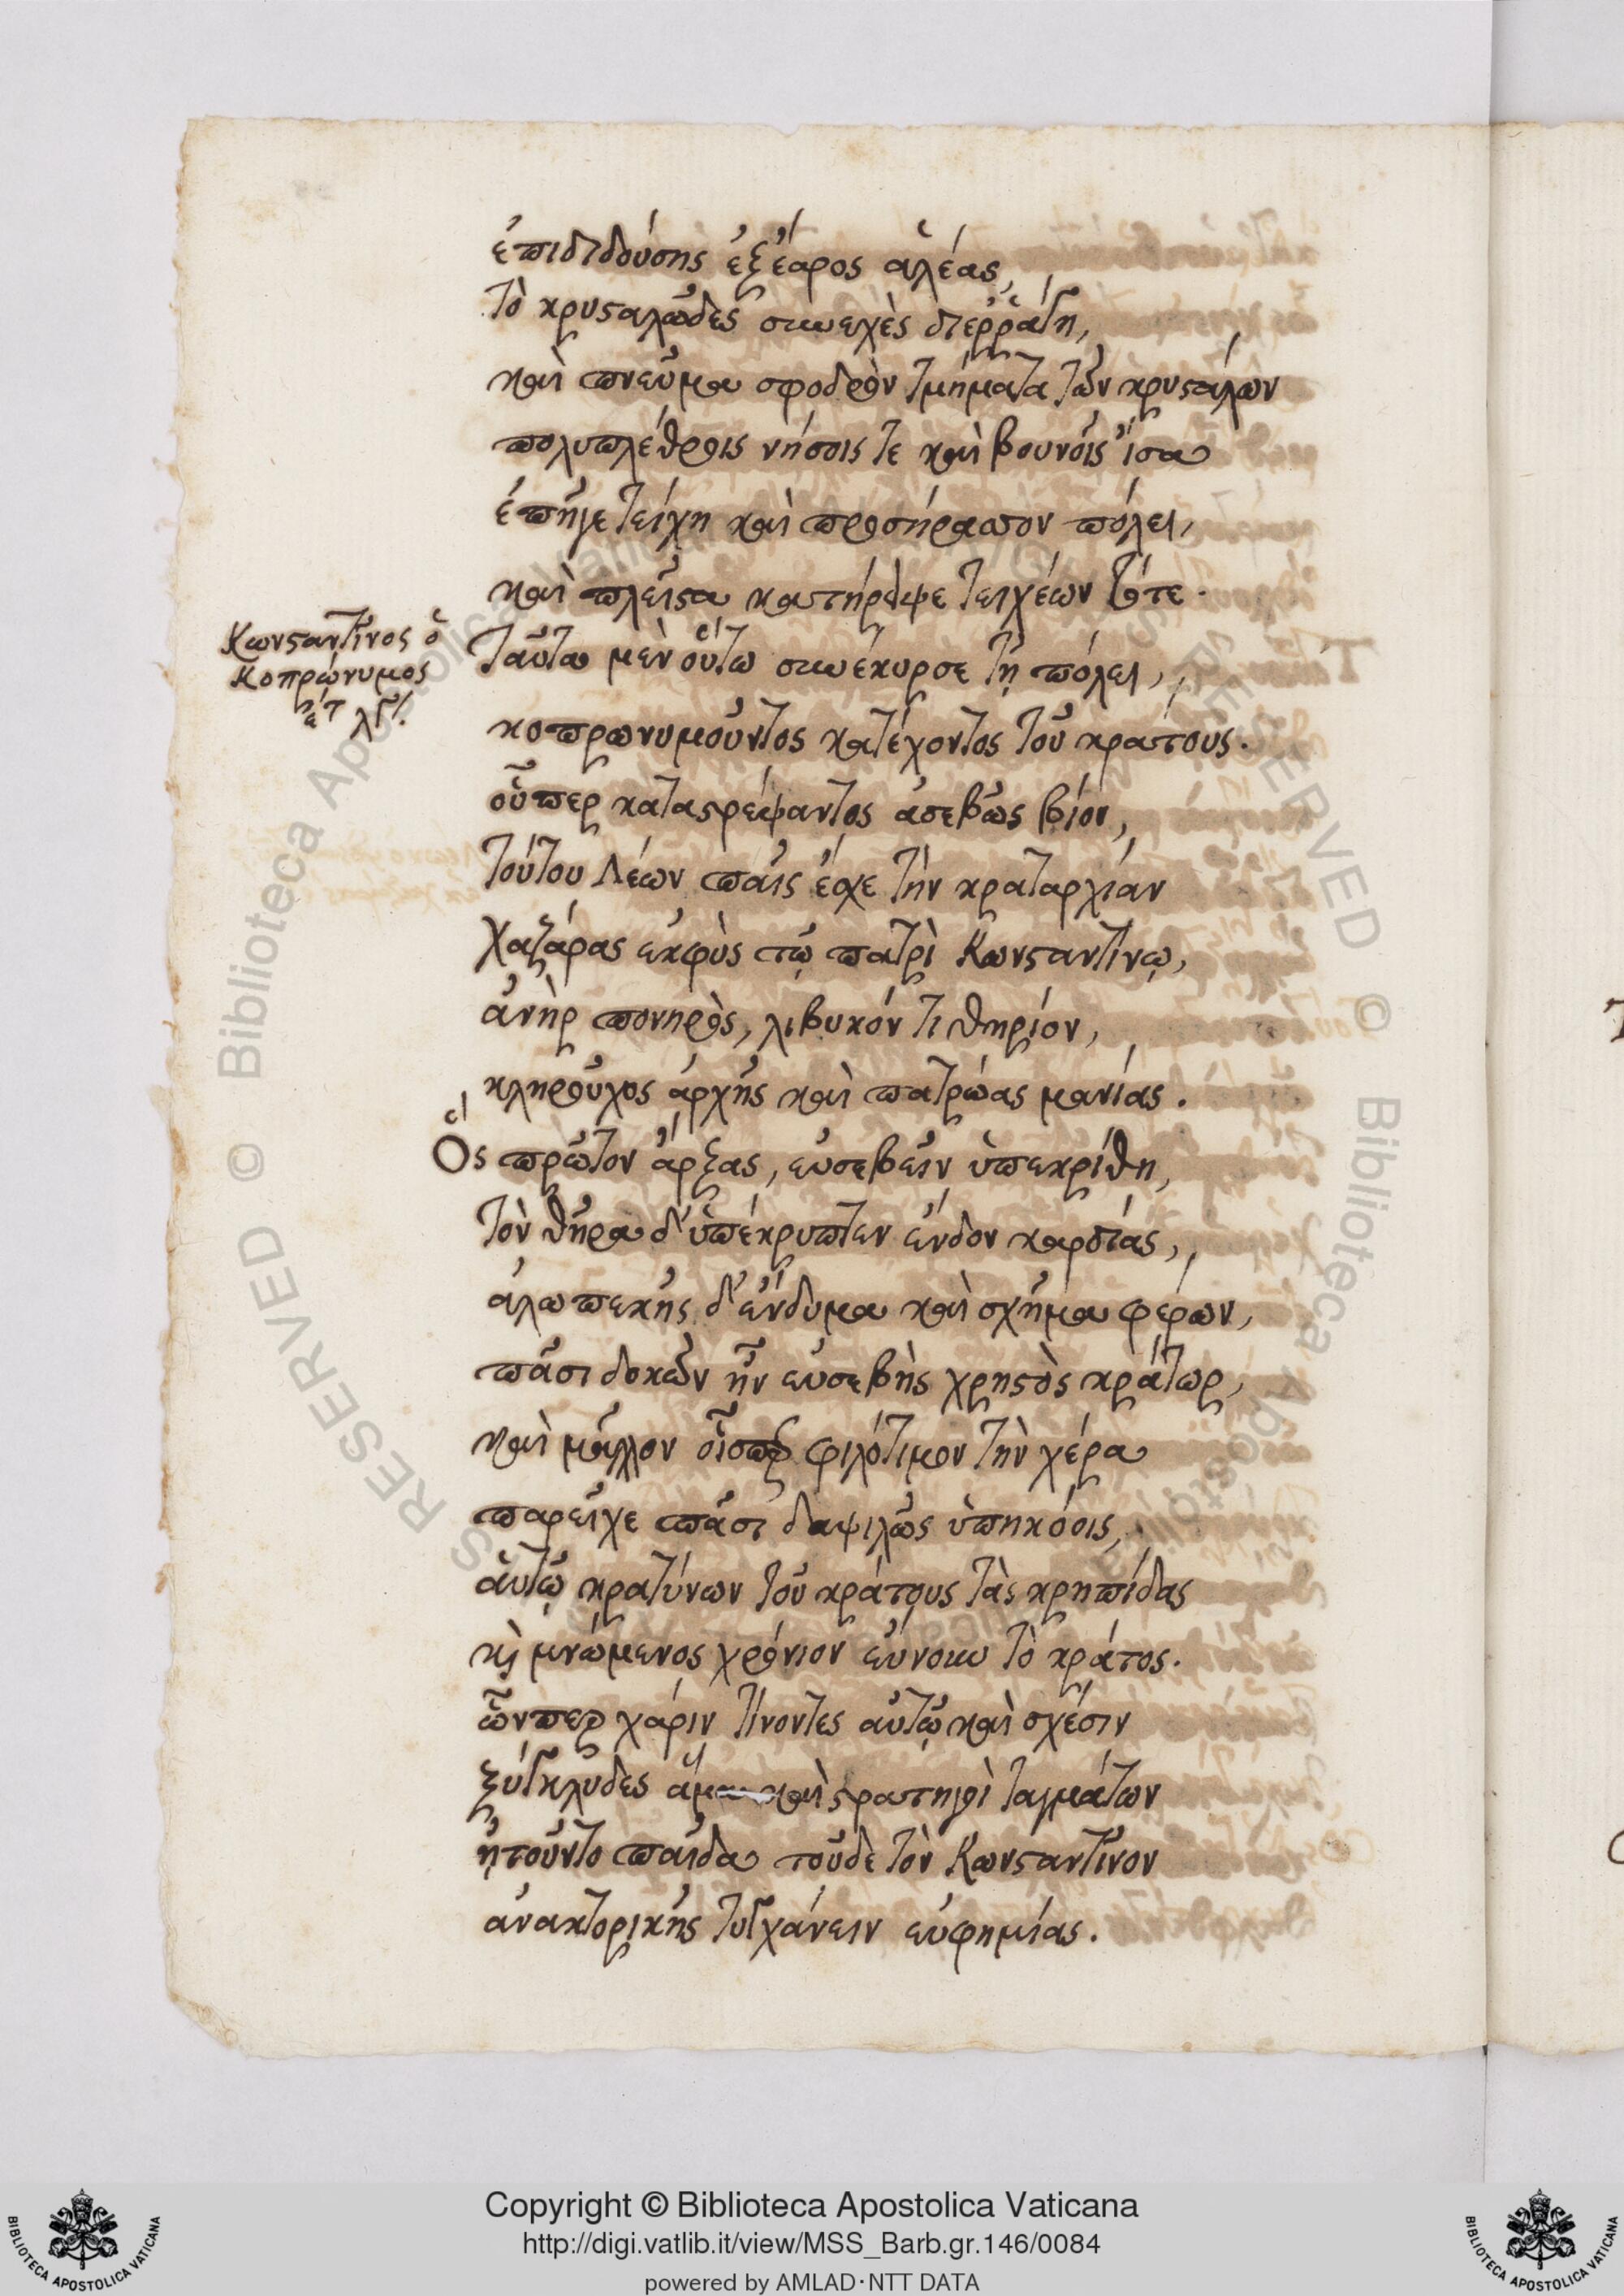 ἐπιδιδούσης ἐξέαρος ἁλέας,
τὸ κρυσταλῶδες συνεχὲς διερράγη,
καὶ πνεῦμα σφοδρὸν τμήματα τῶν κρυστάλων
πολυπλέθροις νήσοις τε καὶ βουνοῖς ἴσα
ἐπῆγε τείχη καὶ προσήραπον πόλει,
καὶ πλεῖστα κατήρειψε τειχέων τότε.
Κωνσταντῖνος ὁ
Κοπρώνυμος
ἔτ λγ.
Ταῦτα μὲν οὕτω συνέκυρσε τῇ πόλει,
κοπρωνυμοῦντος κατέχοντος τοῦ κράτους.
οὗπερ καταστρέψαντος ἀσεβῶς βίον,
τούτου Λέων παῖς ἔσχε τὴν κραταρχίαν
Χαζάρας ἐκφὺς τῷ πατρὶ Κωνσταντίνῳ,
ἀνὴρ πονηρὸς, λιβυκόν τι θηρίον,
κληροῦχος ἀρχῆς καὶ πατρῴας μανίας.
Ὃς πρῶτον ἄρξας, εὐσεβεῖν ὑπεκρίθη,
τὸν θῆρα δ' ὑπέκρυπτεν ἔνδον καρδίας,
ἀλωπεκῆς δ' ἔνδυμα καὶ σχῆμα φέρων,
πᾶσι δοκῶν ἦν εὐσεβὴς χρηστὸς κράτωρ,
καὶ μᾶλλον οἷσπερ φιλότιμον τὴν χέρα
παρεῖχε πᾶσι δαψιλῶς ὑπηκόοις,
αὑτῷ κρατύνων τοῦ κράτους τὰς κρηπίδας
κỳ μνώμενος χρόνιον εὔνουν τὸ κράτος.
ὧνπερ χάριν τίνοντες αὐτῷ καὶ σχέσιν
ξύγκλυδες ἅμα καὶ στρατηγοὶ ταγμάτων
ᾐτοῦντο παῖδα τοῦδε τὸν Κωνσταντῖνον
ἀνακτορικῆς τυγχάνειν εὐφημίας.
Copyright © Biblioteca Apostolica Vaticana
http://digi.vatlib.it/view/MSS_Barb.gr.146/0084
powered by AMLAD·NTT DATA